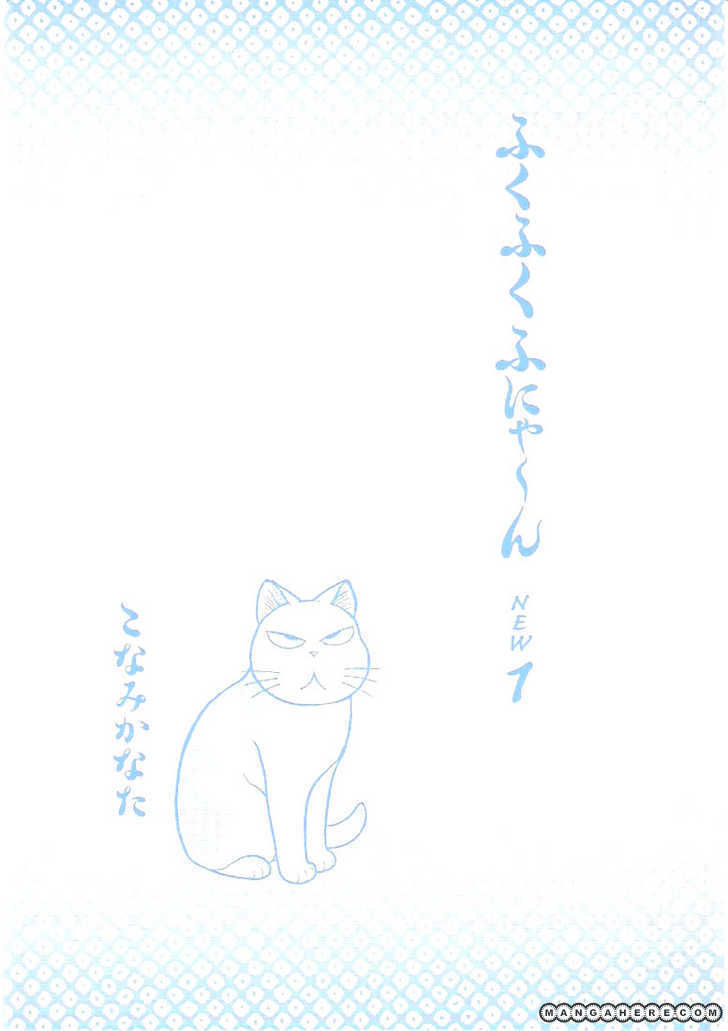 ふくふくふにゃ〜ん NEW 1
こなみかなた
MANGAHERE.COM